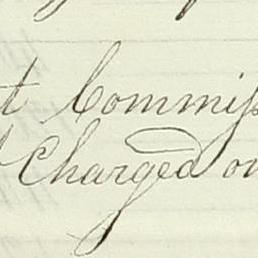 t Commiss
Charged on